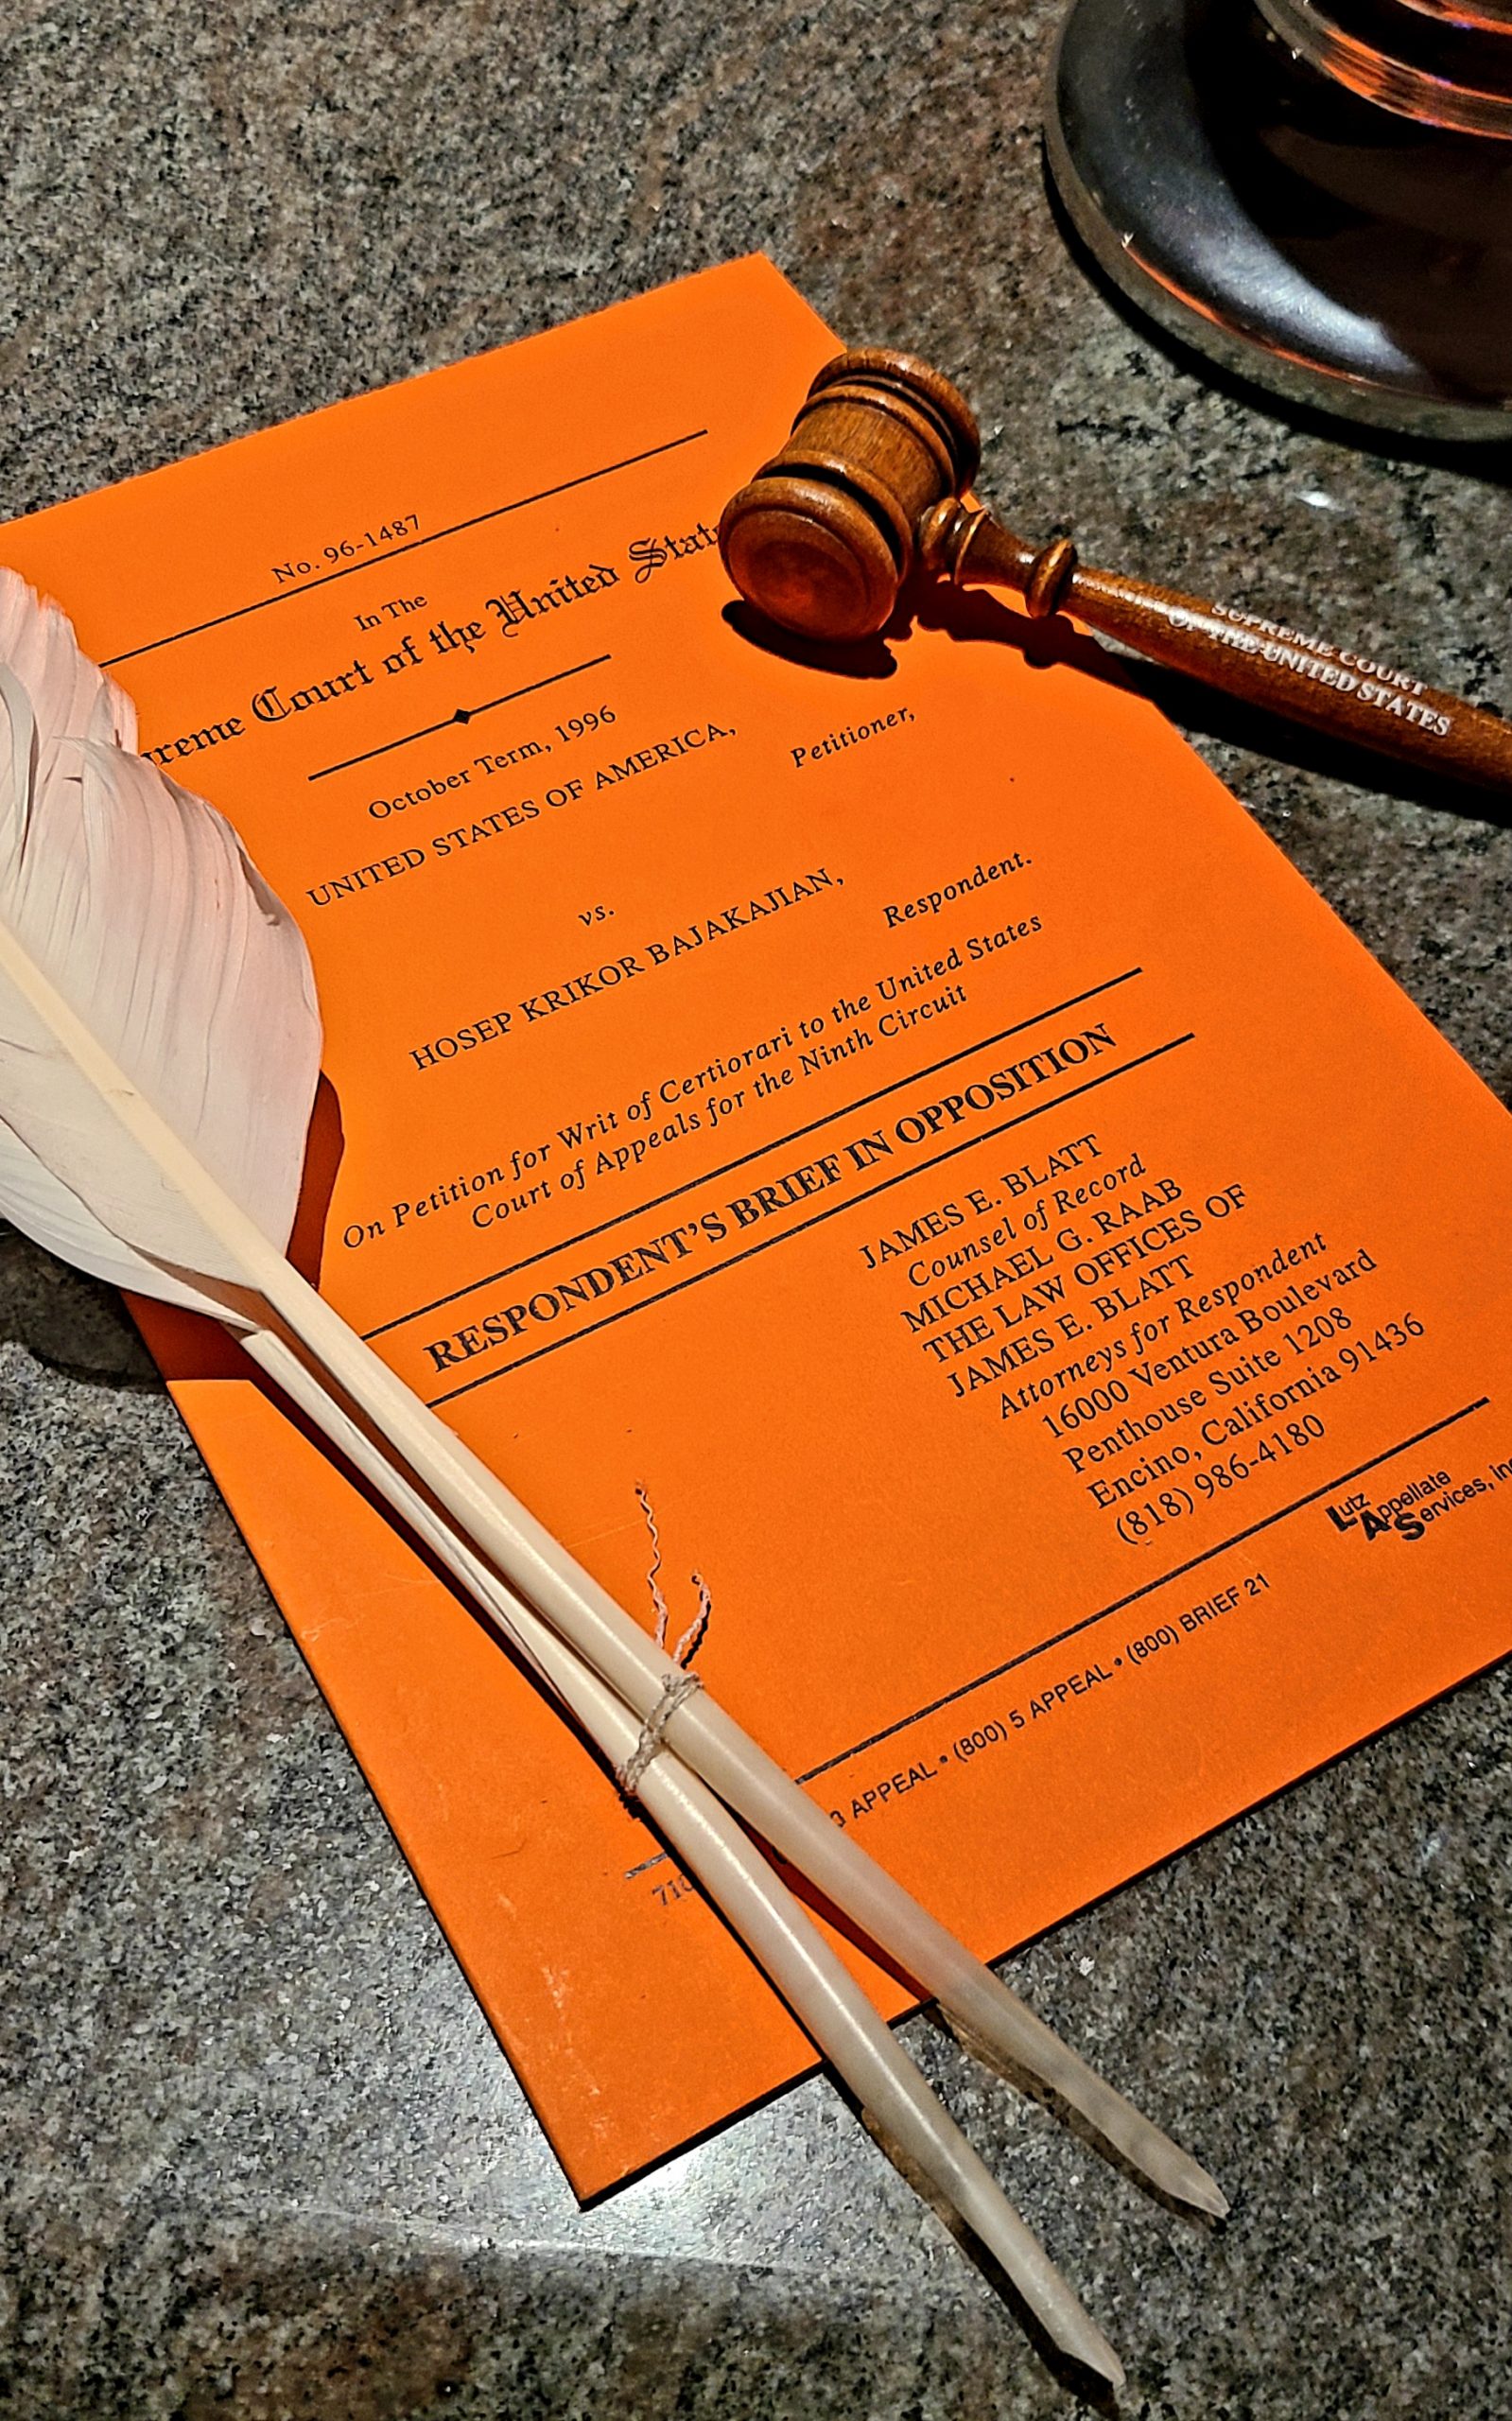 No. 96-1487
In The
reme Court of the United State
October Term, 1996
UNITED STATES OF AMERICA,
Petitioner,
vs.
HOSEP KRIKOR BAJAKAJIAN,
Respondent.
On Petition for Writ of Certiorari to the United States
Court of Appeals for the Ninth Circuit
RESPONDENT'S BRIEF IN OPPOSITION
JAMES E. BLATT
Counsel of Record
MICHAEL G. RAAB
THE LAW OFFICES OF
JAMES E. BLATT
Attorneys for Respondent
16000 Ventura Boulevard
Penthouse Suite 1208
Encino, California 91436
(818) 986-4180
Lutz
Appellate
Services, Inc
3 APPEAL • (800) 5 APPEAL • (800) BRIEF 21
710
SUPREME COURT
OF THE UNITED STATES